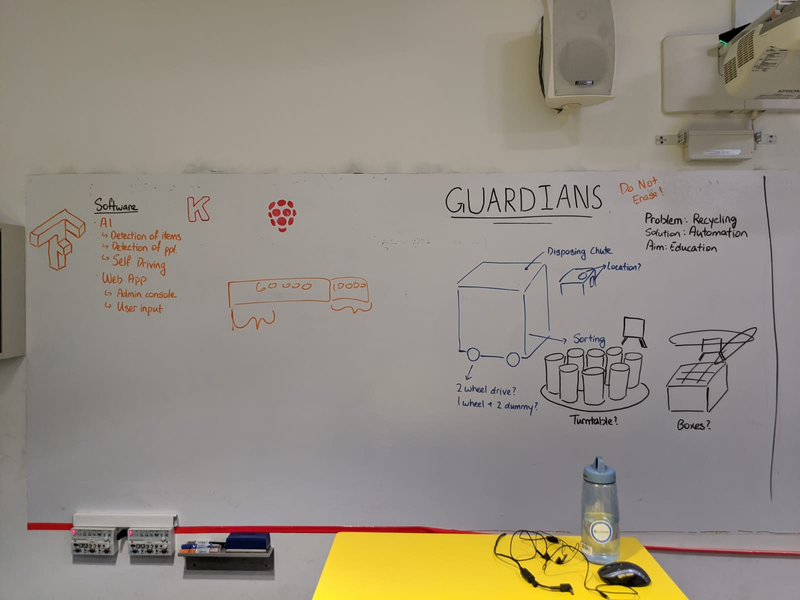 Software
AI
↳ Detection of items
↳ Detection of ppl.
↳ Self Driving
Web App
↳ Admin console
↳ User input
K
60 000
10000
GUARDIANS
Do Not
Erase!
Problem: Recycling
Solution: Automation
Aim: Education
Disposing Chute
Location?
Sorting
2 wheel drive?
1 wheel + 2 dummy?
Turntable?
Boxes?